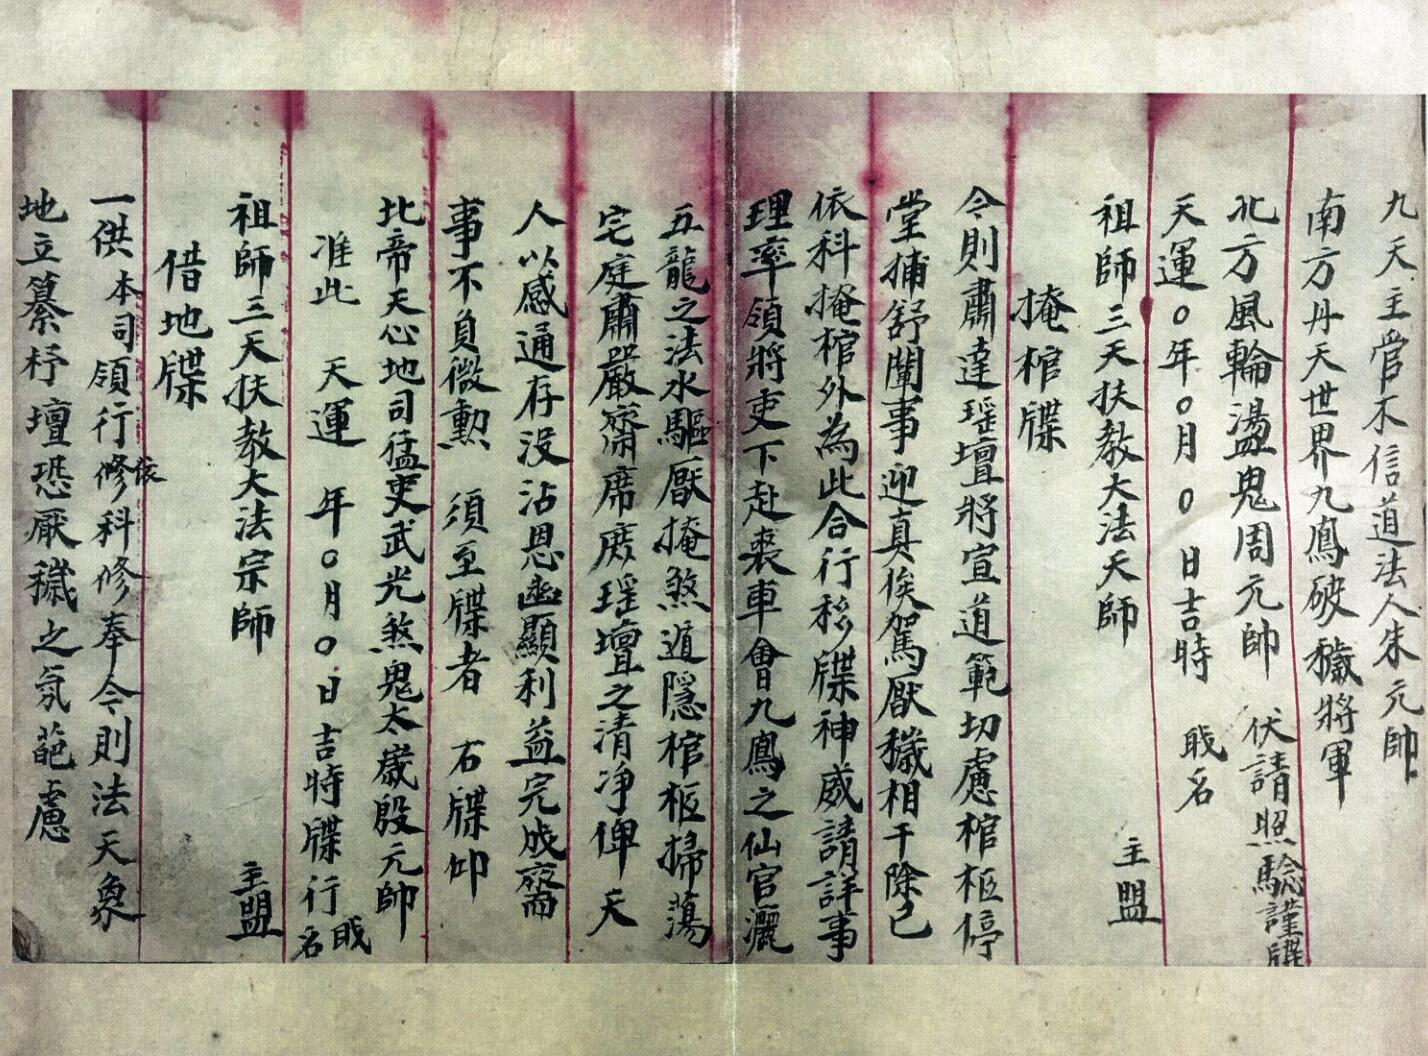 九天主管不信道法人朱元帥
南方丹天世界九鳳破穢將軍
北方風輪盪鬼周元帥 伏請照驗謹牒
天運○年○月○日吉時 職名
祖師三天扶教大法天師 主盟
掩棺牒
今則肅達瑶壇將宣道範切慮棺柩停
堂捕舒闈事迎真俟駕厭穢相干除已
依科掩棺外為此合行移牒神威請詳事
理率領將吏下赴喪車會九鳳之仙官灑
五龍之法水驅厭掩煞遁隱棺柩掃蕩
宅庭肅嚴齋席庻瑶壇之清净俾天
人以感通存没沾恩幽顯利益完成齋
事不負微勲 須至牒者 右牒仰
北帝天心地司猛吏武光煞鬼太歲殷元帥
准此 天運 年○月○日吉時牒行 職名
祖師三天扶教大法宗師 主盟
借地牒
一供本司領行修依科修奉今則法天象
地立纂杼壇恐厭穢之氛葩慮